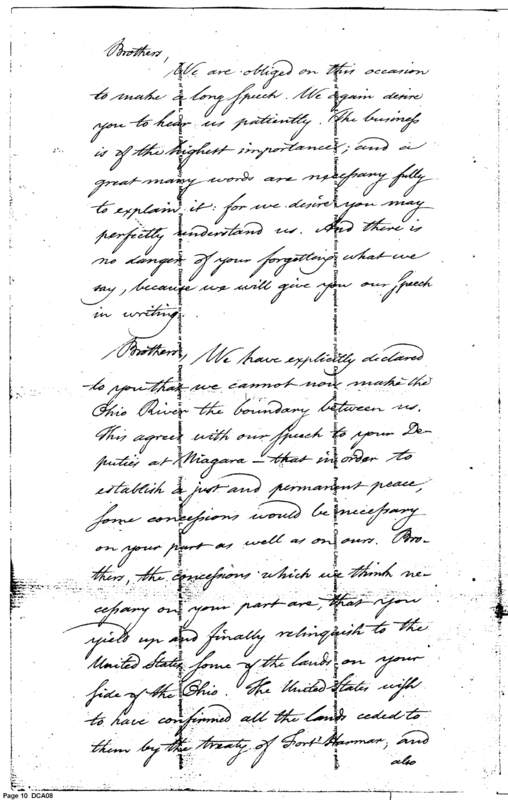 Brothers,
We are obliged on this occasion
to make a long speech. We again desire
you to hear us patiently. The business
is of the highest importance; and a
great many words are necessary fully
to explain it: for we desire you may
perfectly understand us. And there is
no danger of your forgetting what we
say, because we will give you our speech
in writing.
Brothers, We have explicitly declared
to you that we cannot now make the
Ohio River the boundary between us.
This agrees with our speech to your De-
puties at Niagara – that in order to
establish a just and permanent peace,
some concessions would be necessary
on your part as well as on ours. Bro-
thers, the concessions which we think ne-
cessary on your part are, that you
yield up and finally relinquish to the
United States some of the lands on your
side of the Ohio. The United States wish
to have confirmed all the lands ceded to
them by the treaty of Fort Harmar, and
also
Page 10 DCA08